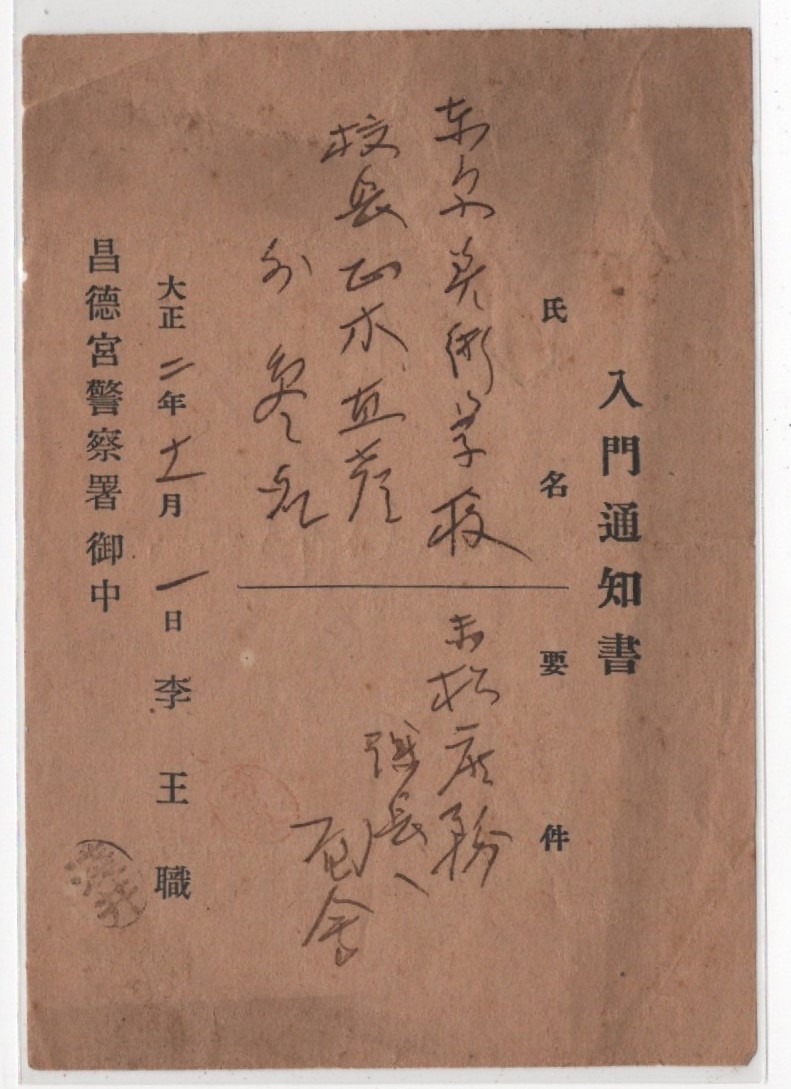 入門通知書
氏名
東京美術学校
校長正木直彦
外
要件
末松庶務
課長へ
面会
大正二年十一月一日 李王職
昌德宮警察署御中